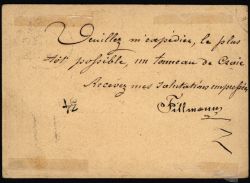 Veuillez m'expédier, le plus
tôt possible, un tonneau de
Recevez mes salutations empressées
Fillmann